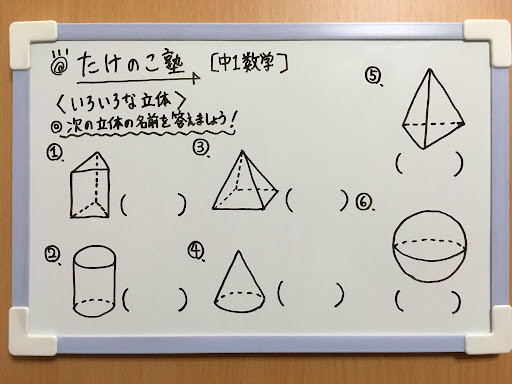 たけのこ塾 [中1数学]
〈いろいろな立体〉
◎次の立体の名前を答えましょう！
①. ( )
②. ( )
③. ( )
④. ( )
⑤. ( )
⑥. ( )